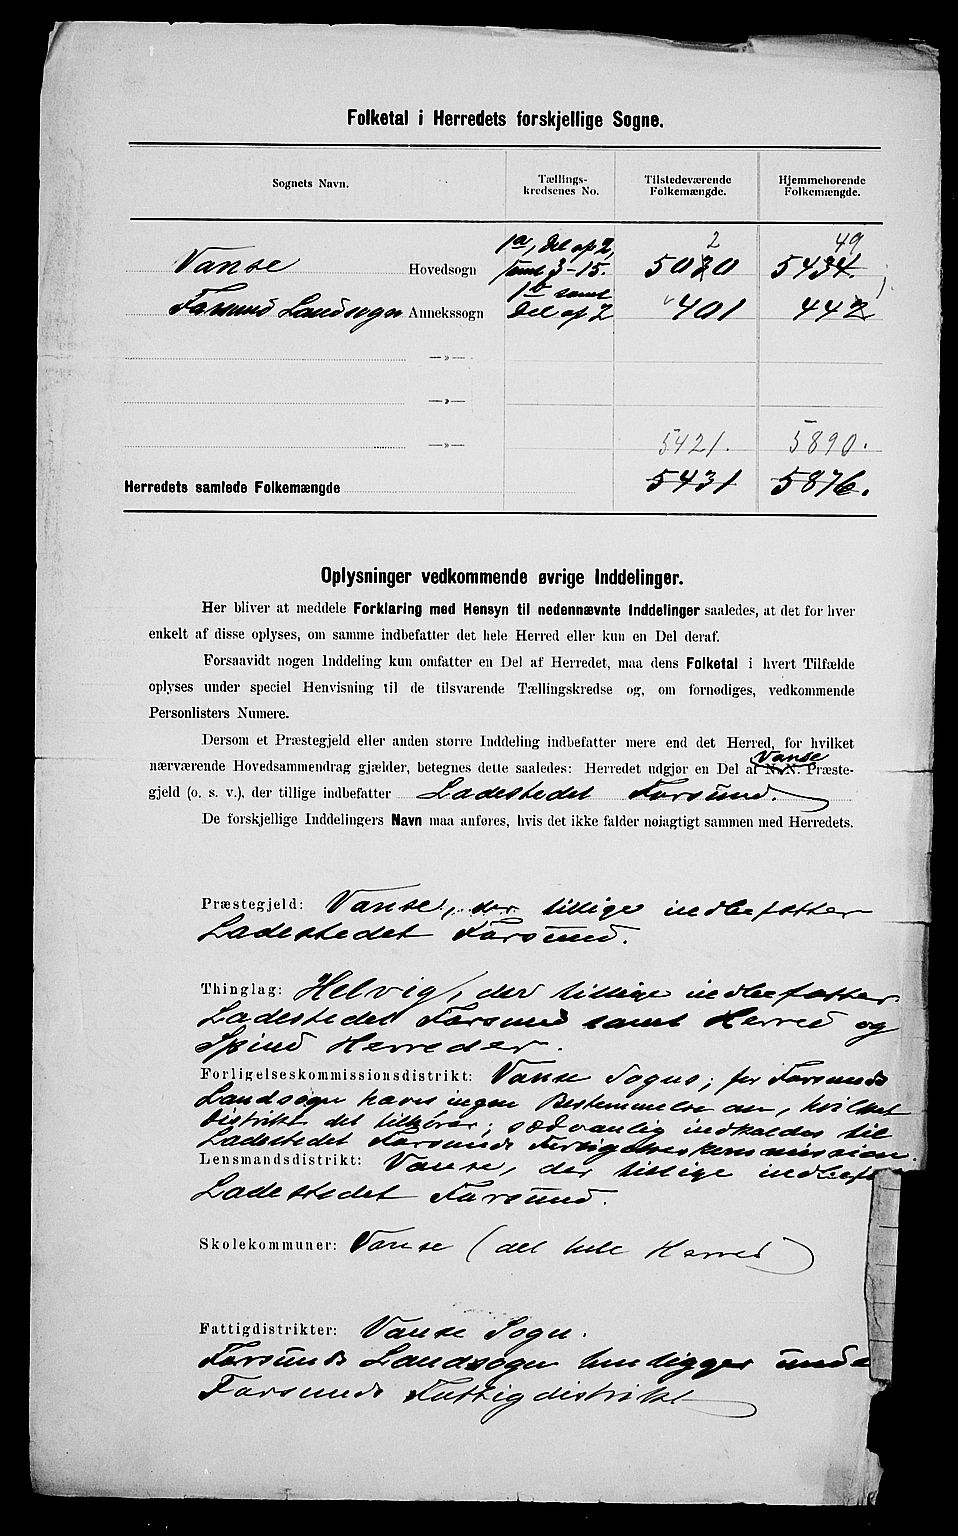 Folketal i Herredets forskjellige Sogne.
Sognets Navn.
Tællings-
kredsenes No.
Tilstedeværende
Folkemængde.
Hjemmehørende
Folkemængde.
1a, Del af 2,
2
49
Vanse Hovedsogn samt 3-15. 5030 5434.
1b samt
Farsund Landsogn Annekssogn Del af 2 401 442
—»—
—»—
—»— 5421. 5890.
Herredets samlede Folkemængde 5431 5876.
Oplysninger vedkommende øvrige Inddelinger.
Her bliver at meddele Forklaring med Hensyn til nedennævnte Inddelinger saaledes, at det for hver
enkelt af disse oplyses, om samme indbefatter det hele Herred eller kun en Del deraf.
Forsaavidt nogen Inddeling kun omfatter en Del af Herredet, maa dens Folketal i hvert Tilfælde
oplyses under speciel Henvisning til de tilsvarende Tællingskredse og, om fornødiges, vedkommende
Personlisters Numere.
Dersom et Præstegjeld eller anden større Inddeling indbefatter mere end det Herred, for hvilket
Vanse
nærværende Hovedsammendrag gjælder, betegnes dette saaledes: Herredet udgjør en Del af N. N. Præste-
gjeld (o. s. v.), der tillige indbefatter Ladestedet Farsund.
De forskjellige Inddelingers Navn maa anføres, hvis det ikke falder nøjagtigt sammen med Herredets.
Præstegjeld: Vanse, der tillige indbefatter
Ladestedet Farsund.
Thinglag: Helvig, der tillige indbefatter
Ladestedet Farsund samt Herred og
Spind Herreder.
Forligelseskommissionsdistrikt: Vanse Sogns; for Farsunds
Landsogn haves ingen Bestemmelse om, hvilket
Distrikt det tilhører; sædvanlig indkaldes til
Ladestedet Farsunds Forligelseskommission.
Lensmandsdistrikt: Vanse, der tillige
Ladestedet Farsund.
Skolekommuner: Vanse (det hele Herred)
Fattigdistrikter: Vanse Sogn.
Farsunds Landsogn henligger
Farsunds Fattigdistrikt